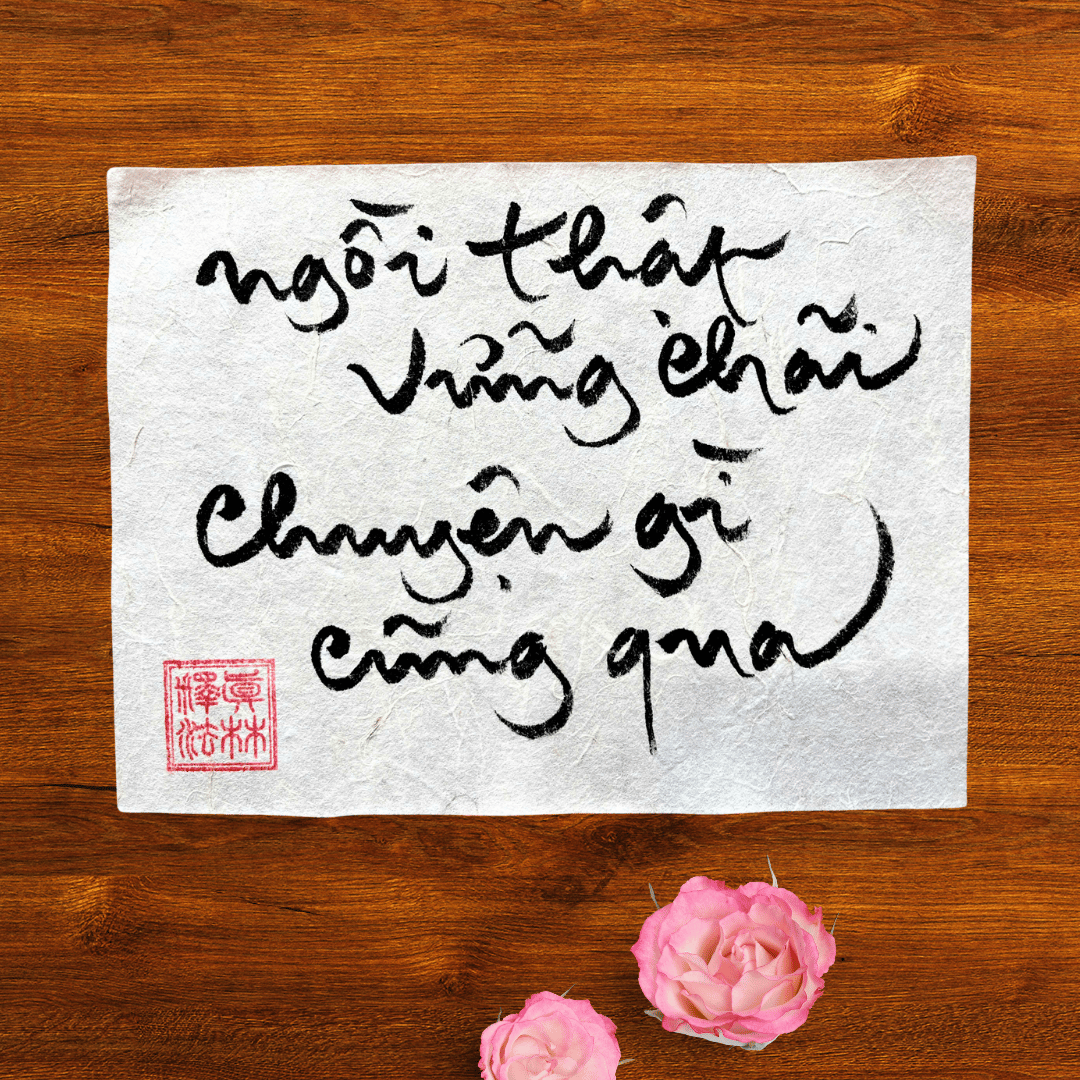 ngồi thật
vững chãi
chuyện gì
cũng qua
眞林
釋法